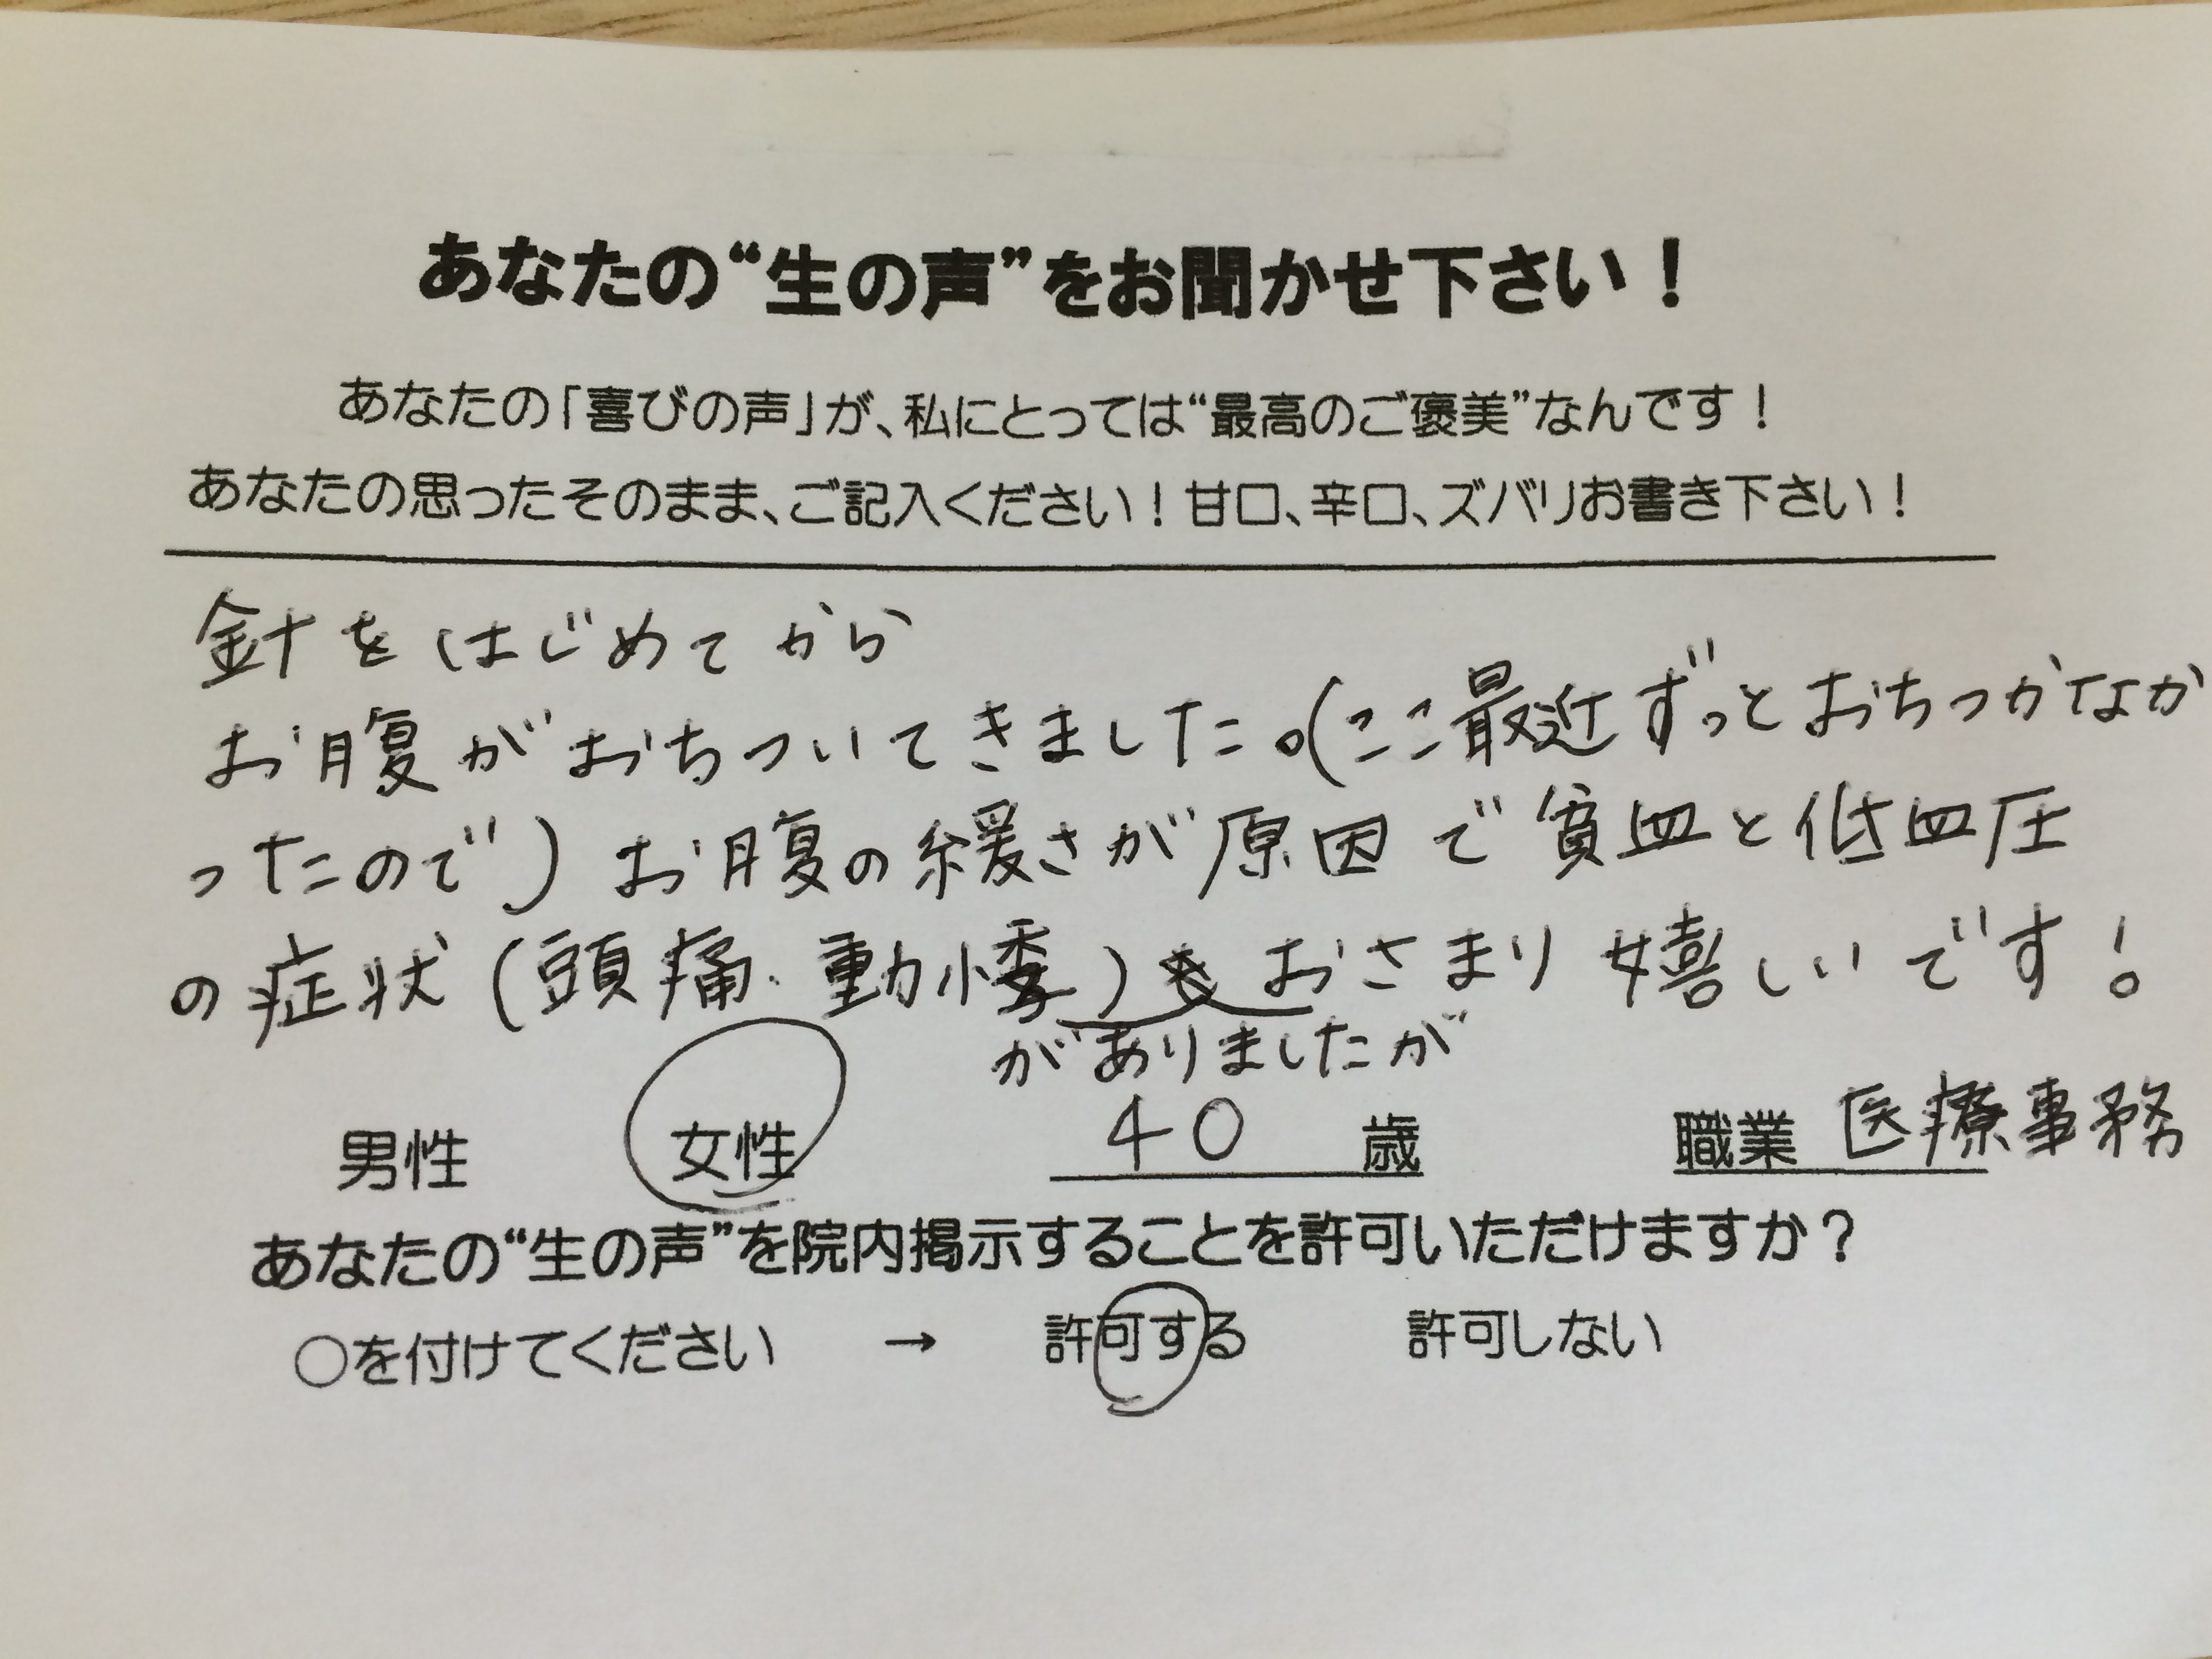 あなたの“生の声”をお聞かせ下さい！
あなたの「喜びの声」が、私にとっては“最高のご褒美”なんです！
あなたの思ったそのまま、ご記入ください！甘口、辛口、ズバリお書き下さい！
針をはじめてから
お腹がおちついてきました。(ここ最近ずっとおちつかなか
ったので）お腹の緩さが原因で貧血と低血圧
の症状（頭痛・動悸）おさまり嬉しいです！
がありましたが
男性 女性 40 歳 職業 医療事務
あなたの“生の声”を院内掲示することを許可いただけますか？
○を付けてください → 許可する 許可しない